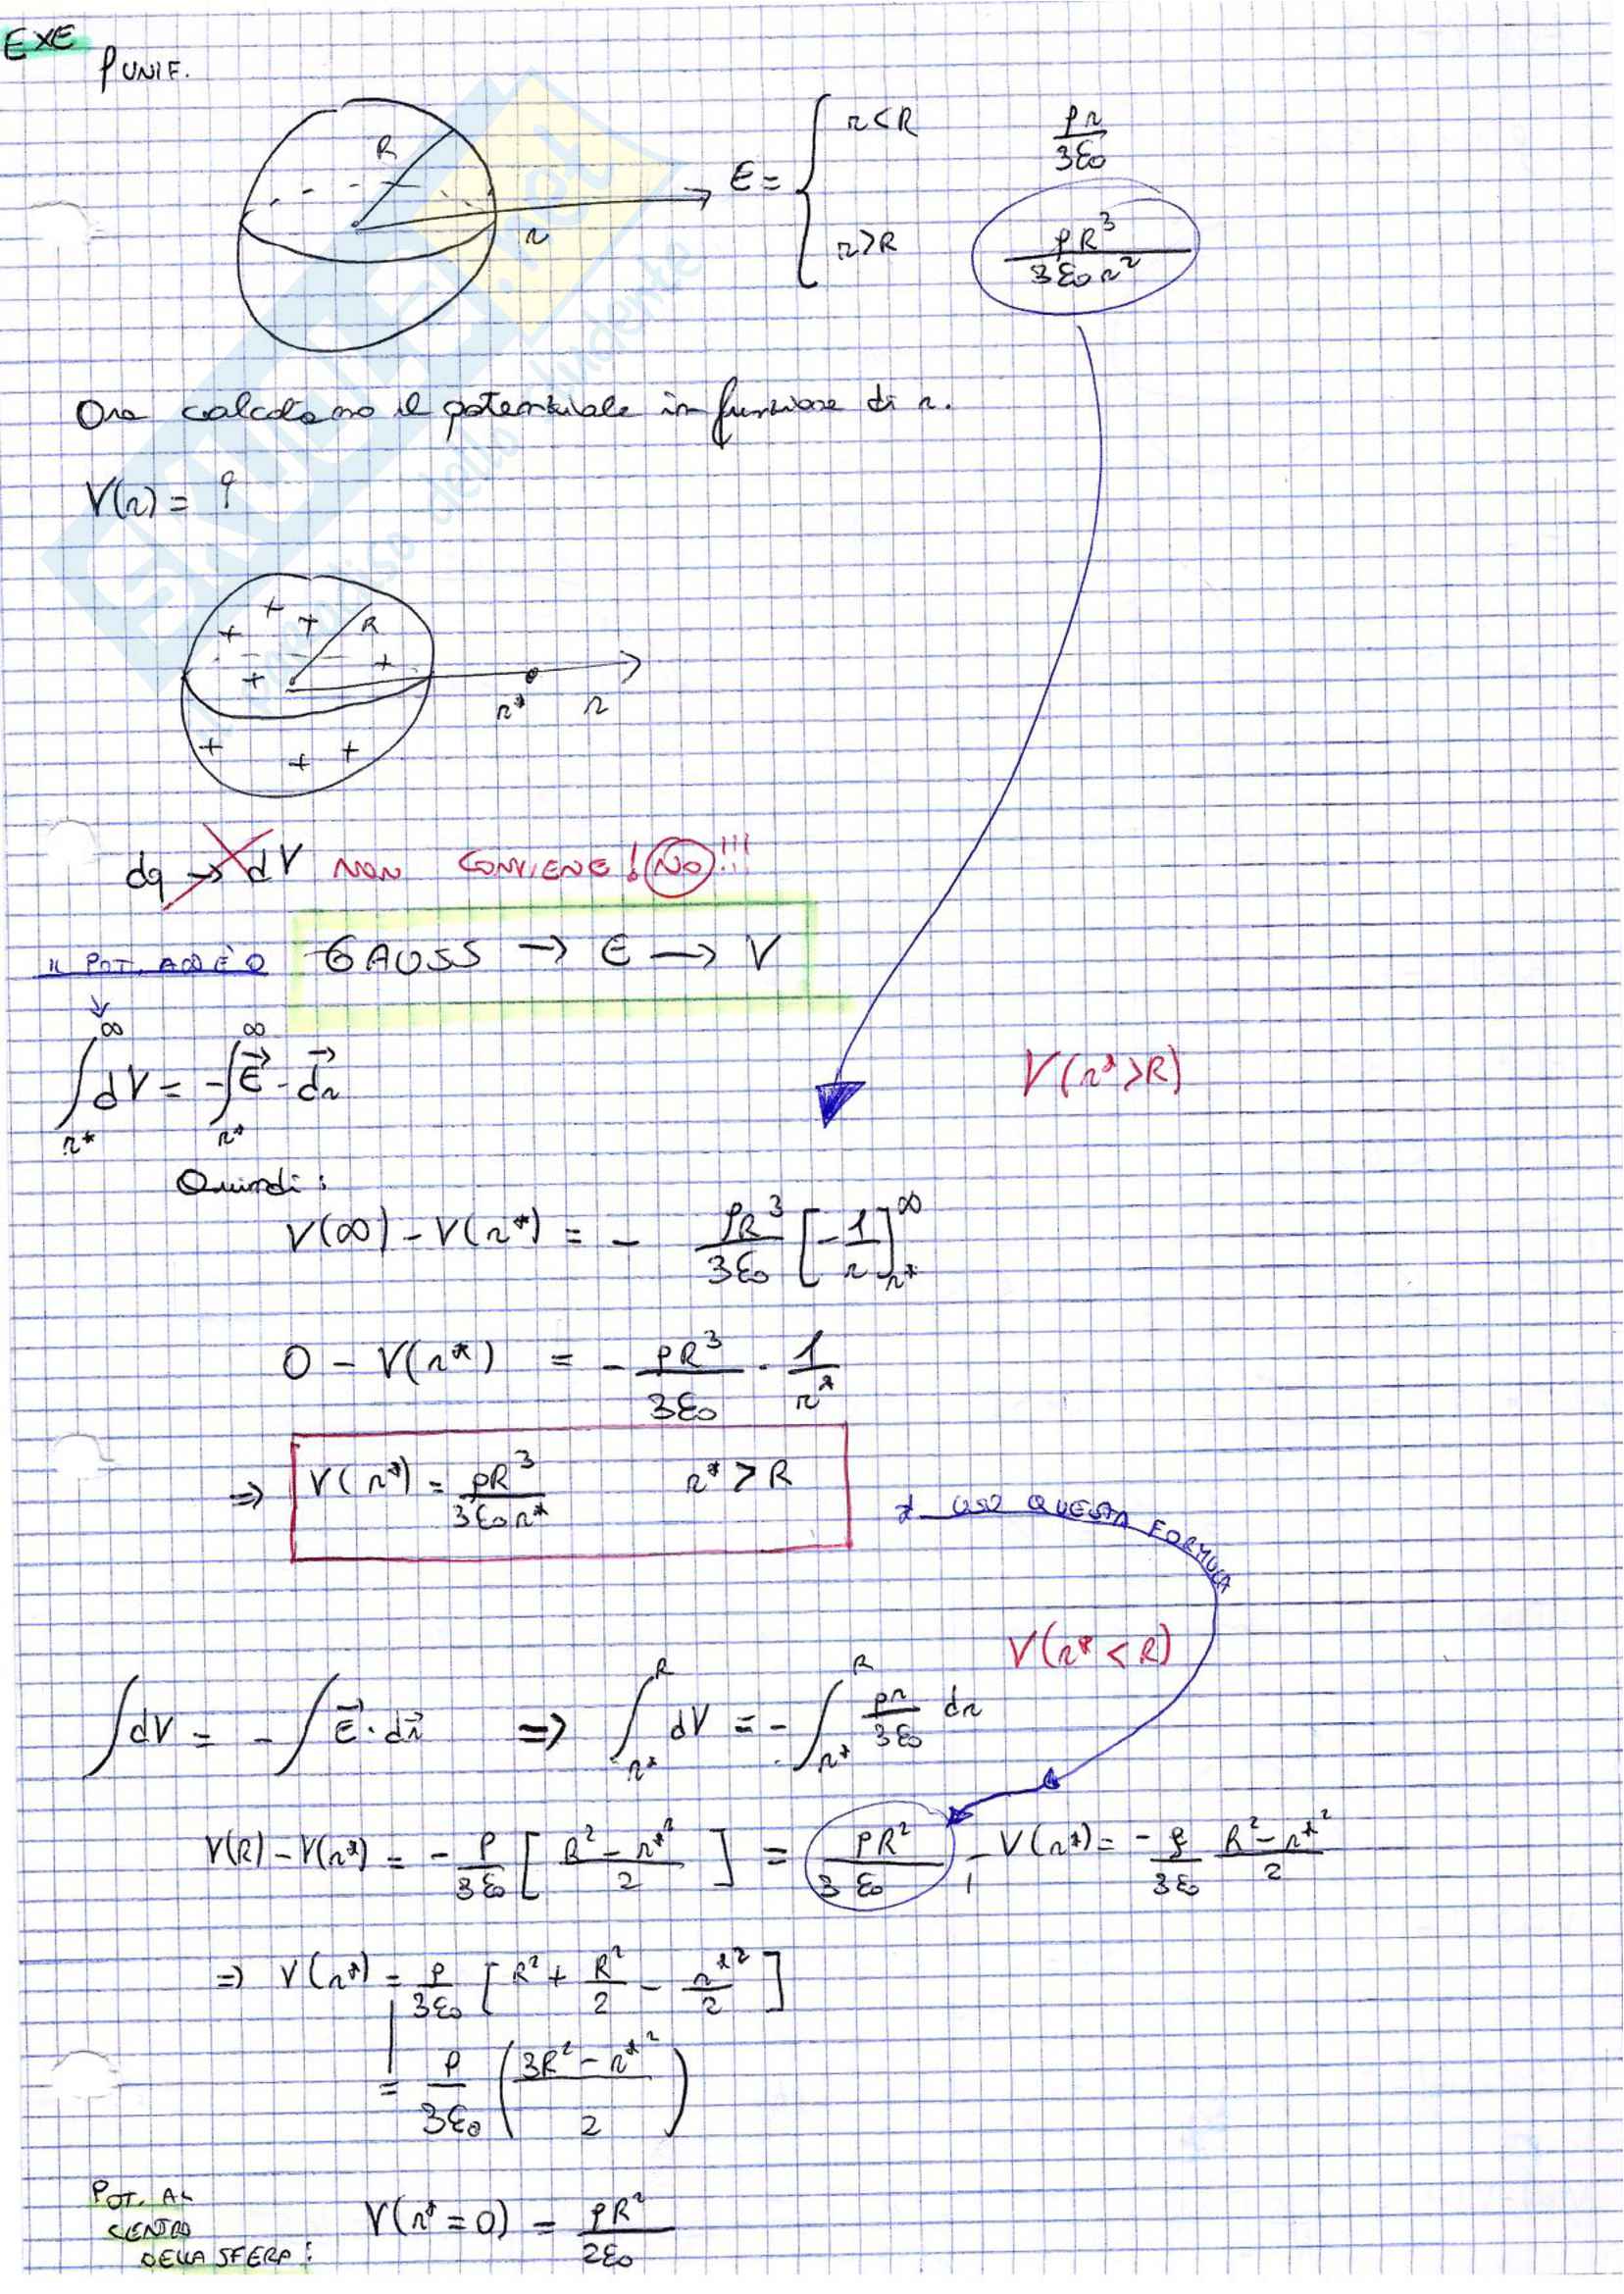 EXE
ρ UNIF.
R
r
E = { r<R ρr/3ε₀
r>R ρR³/3ε₀r²
Ora calcoliamo il potenziale in funzione di r.
V(r) = ?
+ + + R
+ +
r* r
+ + +
dq → dV NON CONVIENE! NO!!!
IL POT. AD ∞ È 0 GAUSS → E → V
∫_{r*}^{∞} dV = -∫_{r*}^{∞} E⃗ · dr⃗
V(r*>R)
Quindi:
V(∞) - V(r*) = - ρR³/3ε₀ [-1/r]_{r*}^{∞}
0 - V(r*) = - ρR³/3ε₀ · 1/r*
⇒ V(r*) = ρR³/3ε₀r* r* > R
* USO QUESTA FORMULA
V(r* < R)
∫dV = -∫E⃗ · dr⃗ ⇒ ∫_{r*}^{R} dV = -∫_{r*}^{R} ρr/3ε₀ dr
V(R) - V(r*) = - ρ/3ε₀ [R² - r*²/2] = ρR²/3ε₀ - V(r*) = - ρ/3ε₀ R² - r*²/2
⇒ V(r*) = ρ/3ε₀ [R² + R²/2 - r*²/2]
= ρ/3ε₀ (3R² - r*²/2)
POT. AL
CENTRO
DELLA SFERA: V(r* = 0) = ρR²/2ε₀